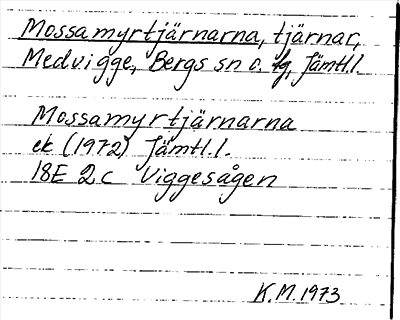 Mossamyrtjärnarna, tjärnar,
Medvigge, Bergs sn o. tg, Jämtl.l.
Mossamyrtjärnarna
ek (1972) Jämtl.l.
18E 2c Viggesågen
K.M. 1973